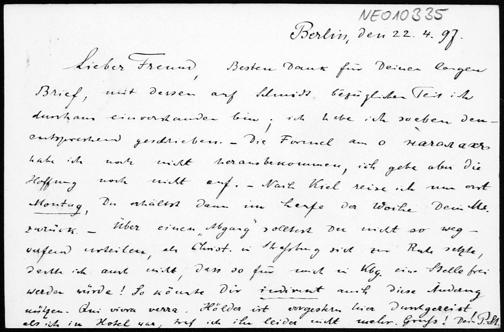 NE010335
Berlin, den 22. 4. 97.
Lieber Freund, Besten Dank für Deinen langen
Brief, mit dessen auf Schmidt bezüglichen Teil ich
durchaus einverstanden bin; ich habe ich soeben dem-
entsprechend geschrieben. – Die Formel am
habe ich noch nicht herausbekommen, ich gebe aber die
Hoffnung noch nicht auf. – Nach Kiel reise ich nun erst
Montag, Du erhältst dann im Laufe der Woche Dein Me.
zurück. – Über einen "Abgang" solltest Du nicht so weg-
urteilen, als Christ. in Straßburg sich zur Ruhe setzte,
dachte ich auch nicht, dass so für mich in Kbg. eine Stelle frei
werden würde! So könnte Dir indirect auch diese Andrang
nützen. Qui vivra verra. Hölder ist vorgestern hier durchgereist
als ich im Hotel war, traf ich ihn leider nicht mehr. Gruß! Dein